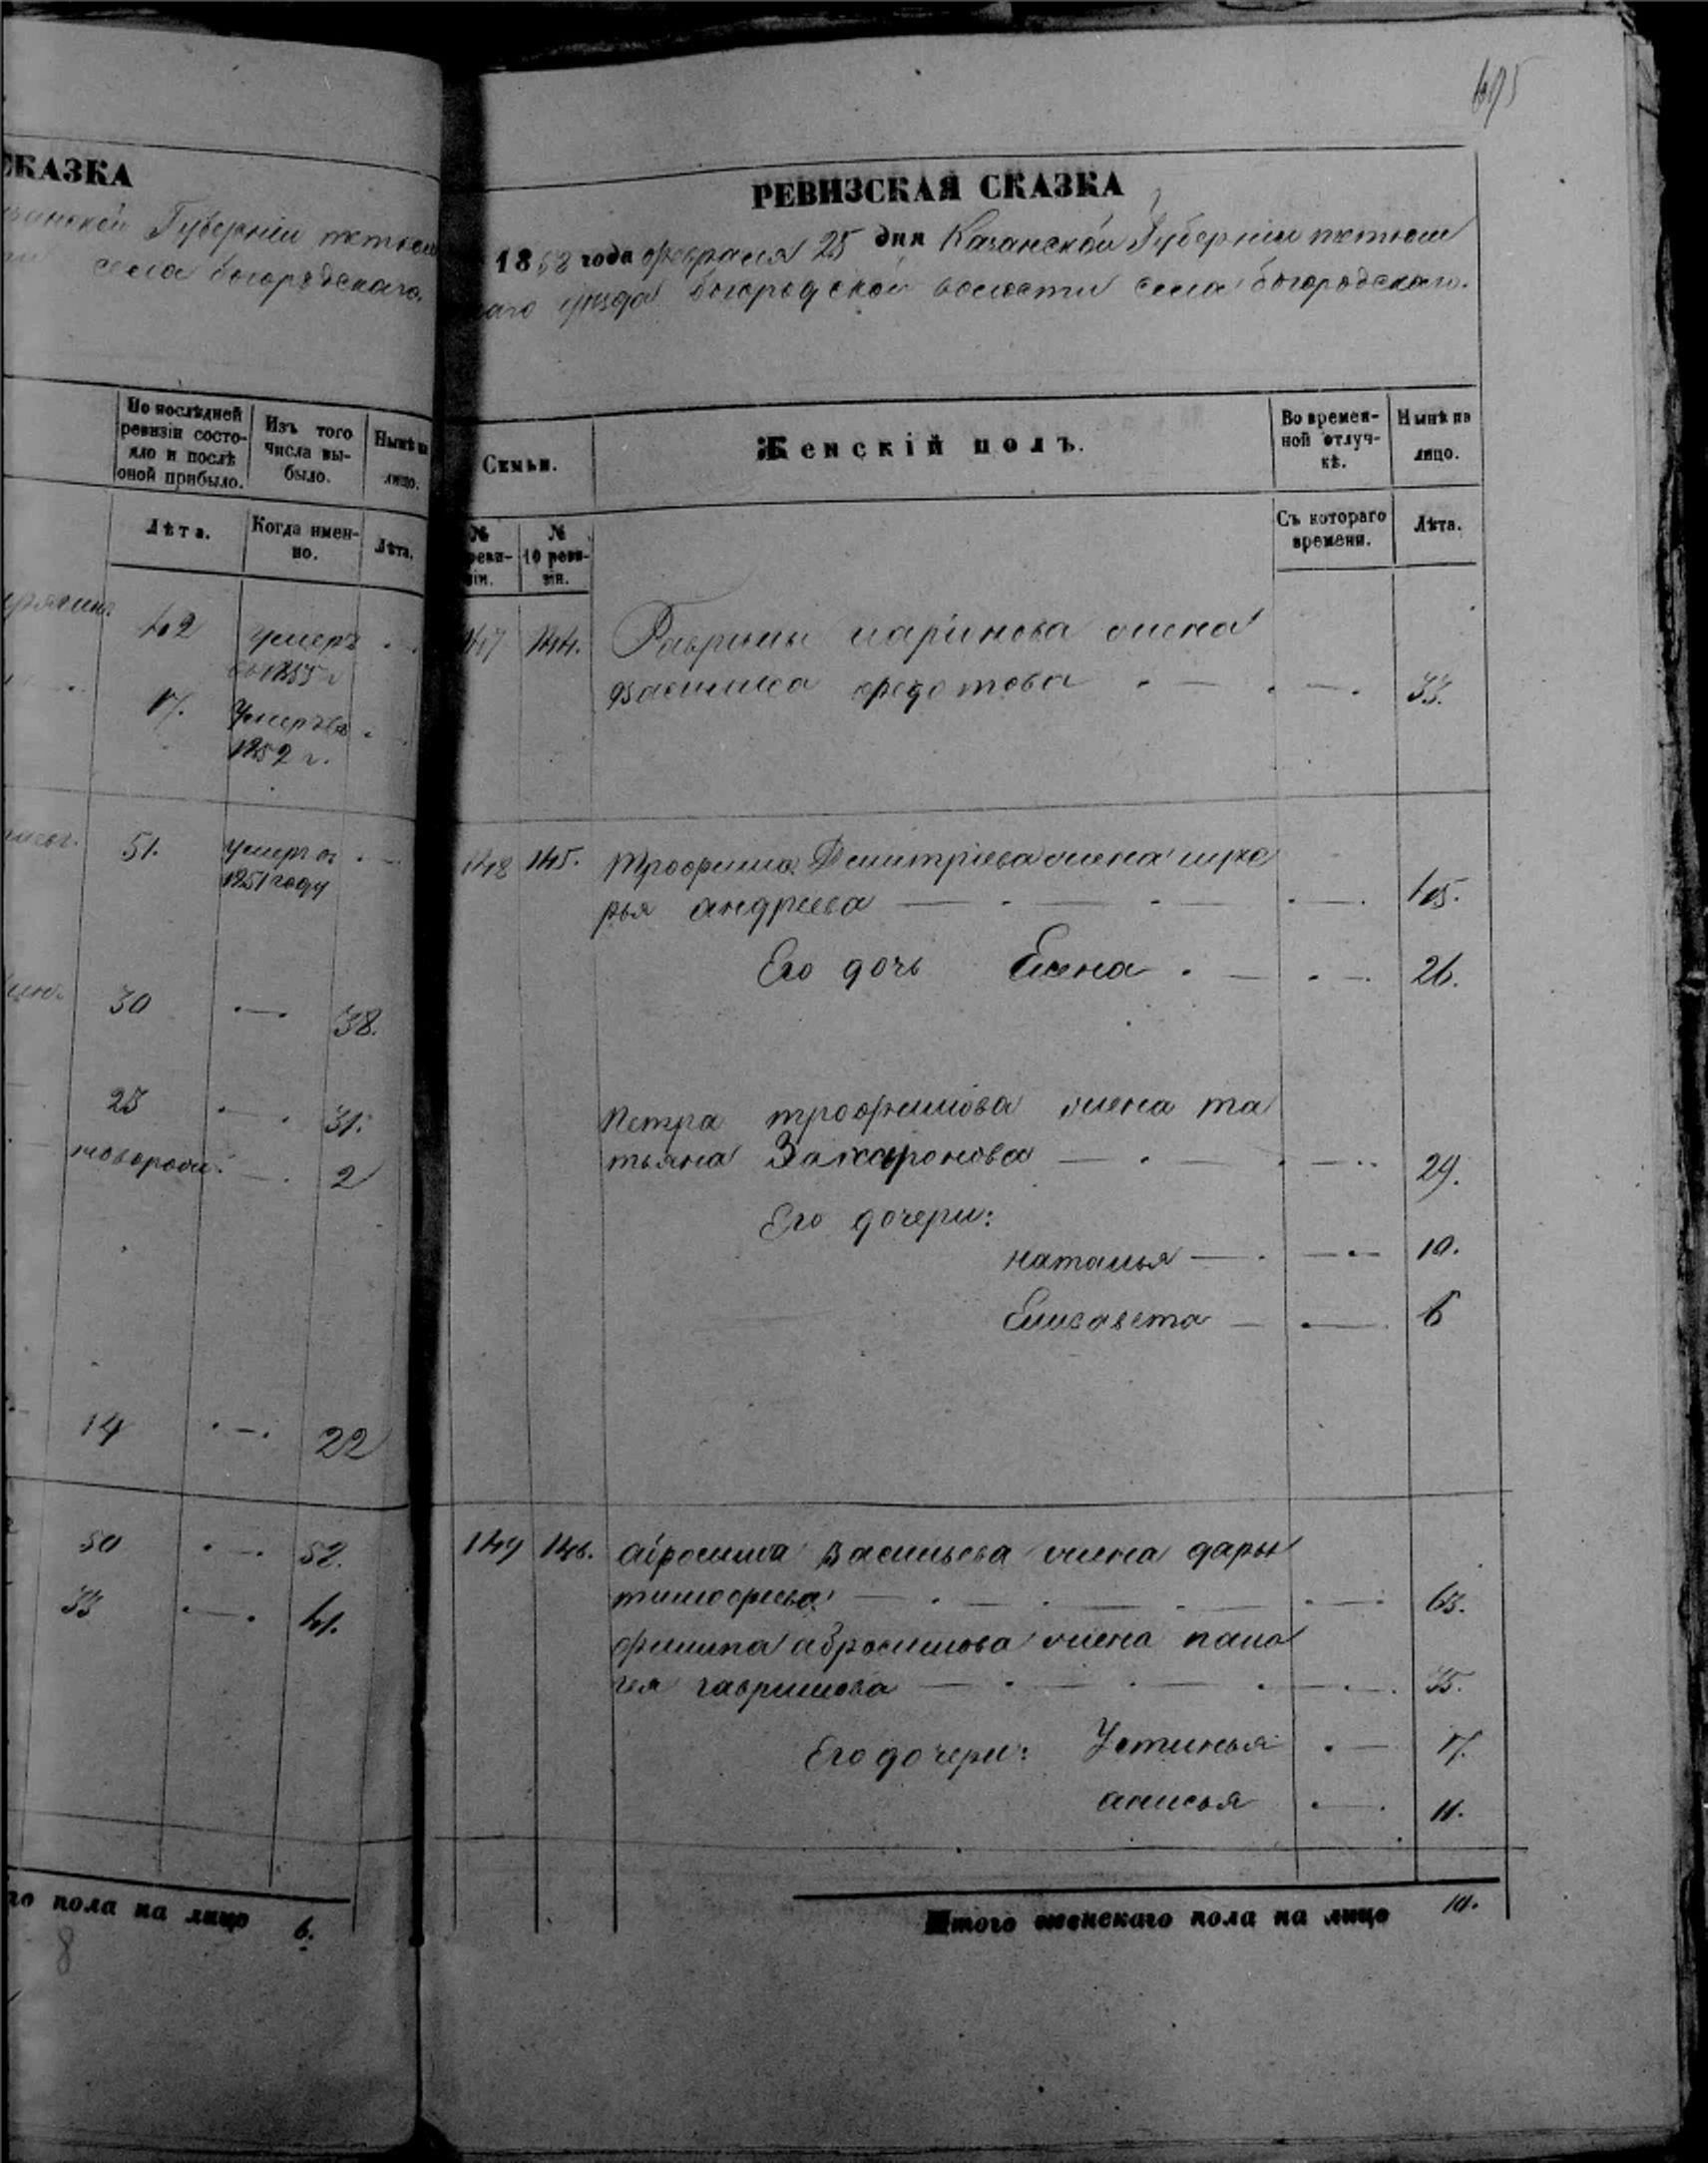 СКАЗКА
Губерніи тетюш
села богородскаго.
По послѣдней
ревизіи состо-
яло и послѣ
оной прибыло.
Изъ того
числа вы-
было.
Нынѣ на
лицо.
Лѣта.
Когда имен-
но.
Лѣта.
42
умеръ
въ 1855 г
17.
Умеръ въ
1852 г.
51.
умеръ въ
1851 году
30
38.
23
31.
новорож.
2
14
22
50
58.
33
41.
го пола на лицо 6.
8
РЕВИЗСКАЯ СКАЗКА
1858 года февраля 25 дня Казанской Губерніи тетюш
скаго уѣзда богородской волости села богородскаго.
Семьи.
Женскій полъ.
Во времен-
ной отлуч-
кѣ.
Нынѣ на
лицо.
№
реви-
зіи.
№
10 реви-
зіи.
Съ котораго
времени.
Лѣта.
147 144. Гаврилы ларіонова жена
Василиса федотова 33.
148 145. Трофима Дмитріева жена
андреева
Его дочь Елена 26.
Петра трофимова жена та
тьяна Захаронова 29.
Его дочери:
наталья 10.
Елисавета 6
149 146. абросима Васильева жена дарья
тимофеева 63.
филипа абросимова жена пала
гея гаврилова 35.
Его дочери: Устинья 17.
анисья 11.
Итого женскаго пола на лицо 10.